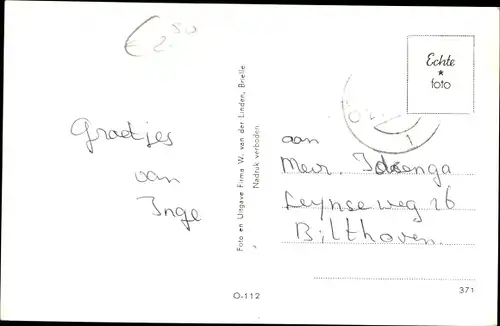 € 2.50
Echte
foto
Groetjes
van
Inge
Foto en Uitgave Firma W. van der Linden, Brielle
Nadruk verboden
aan
Mevr. Idsenga
Leynseweg 26
Bilthoven.
O-112
371